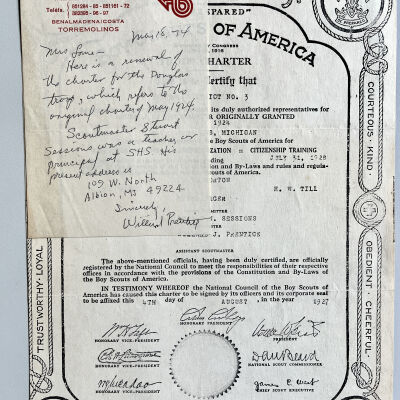 Teléfs. 851284 - 85 - 851161 - 72
882395 - 96 - 97
BENALMADENA/COSTA
TORREMOLINOS
May 16, 74
Mrs Lowe -
Here is a renewal of
the charter for the Douglas
troop, which refers to the
original charter of May 1924.
Scoutmaster Stuart
Sessions was a teacher or
principal at SHS His
present address is
109 W. North
Albion, MI 49224
Sincerely,
Willard Prentice
PARED"
OF AMERICA
CONGRESS
1916
HARTER
ertify that
ICT NO. 3
its duly authorized representatives for
ER ORIGINALLY GRANTED
1924
S, MICHIGAN
the Boy Scouts of America for
IZATION = CITIZENSHIP TRAINING
JULY 31, 1928
tion and By-Laws and rules and regula-
couts of America.
ATON
H. W. TILL
NGEN
MITTEE
M. SESSIONS
TER
J. PRENTICE
ASSISTANT SCOUTMASTER
The above-mentioned officials, having been duly certified, are officially
registered by the National Council to meet the responsibilities of their respective
offices in accordance with the provisions of the Constitution and By-Laws of the
Boy Scouts of America.
IN TESTIMONY WHEREOF the National Council of the Boy Scouts of
America has caused this charter to be signed by its officers and its corporate seal
to be affixed this 4TH day of AUGUST, in the year 1927
HONORARY PRESIDENT
HONORARY VICE-PRESIDENT
PRESIDENT
HONORARY VICE-PRESIDENT
Dan Beard
NATIONAL SCOUT COMMISSIONER
HONORARY VICE-PRESIDENT
James E. West
CHIEF SCOUT EXECUTIVE
TRUSTWORTHY·LOYAL
COURTEOUS·KIND·
OBEDIENT·CHEERFUL·